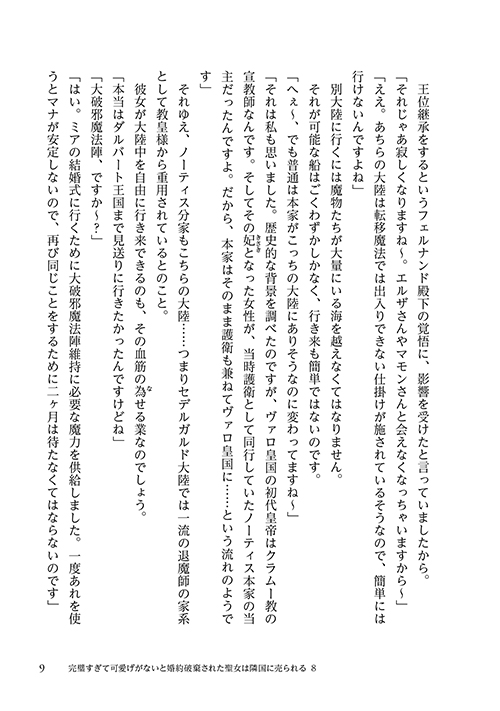 王位継承をするというフェルナンド殿下の覚悟に、影響を受けたと言っていましたから。
「それじゃあ寂しくなりますね～。エルザさんやマモンさんと会えなくなっちゃいますから～」
「ええ。あちらの大陸は転移魔法では出入りできない仕掛けが施されているそうなので、簡単には
行けないんですよね」
別大陸に行くには魔物たちが大量にいる海を越えなくてはなりません。
それが可能な船はごくわずかしかなく、行き来も簡単ではないのです。
「へぇ～、でも普通は本家がこっちの大陸にありそうなのに変わってますね～」
「それは私も思いました。歴史的な背景を調べたのですが、ヴァロ皇国の初代皇帝はクラムー教の
宣教師なんです。そしてその妃となった女性が、当時護衛として同行していたノーティス本家の当
きさき
主だったんですよ。だから、本家はそのまま護衛も兼ねてヴァロ皇国に……という流れのようで
す」
それゆえ、ノーティス分家もこちらの大陸……つまりセデルガルド大陸では一流の退魔師の家系
として教皇様から重用されているとのこと。
彼女が大陸中を自由に行き来できるのも、その血筋の為せる業なのでしょう。
な
「本当はダルバート王国まで見送りに行きたかったんですけどね」
「大破邪魔法陣、ですか～？」
「はい。ミアの結婚式に行くために大破邪魔法陣維持に必要な魔力を供給しました。一度あれを使
うとマナが安定しないので、再び同じことをするために二ヶ月は待たなくてはならないのです」
9 完璧すぎて可愛げがないと婚約破棄された聖女は隣国に売られる 8